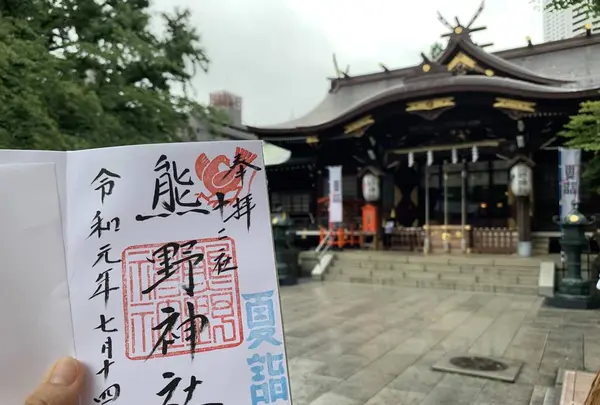 奉拝
十二社
熊野神社
令和元年七月十四
夏詣
夏詣